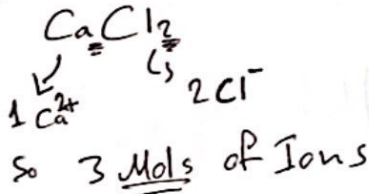 CaCl₂
1 Ca²⁺ 2Cl⁻
So 3 Mols of Ions